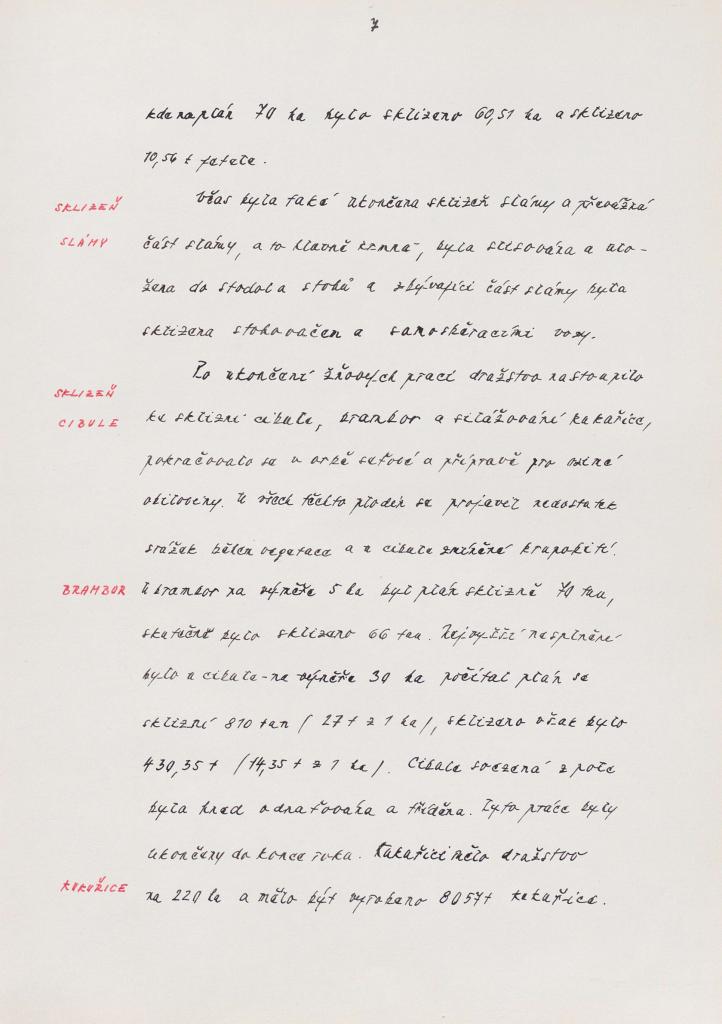 7
kde na plán 70 ha bylo sklizeno 60,51 ha a sklizeno
10,56 t jetele.
SKLIZEŇ
SLÁMY
Včas byla také ukončena sklizeň slámy a převážná
část slámy, a to hlavně krmné, byla slisována a ulo-
žena do stodol a stohů a zbývající část slámy byla
sklizena stohovačem a samosběracími vozy.
SKLIZEŇ
CIBULE
Po ukončení žňových prací družstvo nastoupilo
ke sklizni cibule, brambor a silážování kukuřice,
pokračovalo se v orbě seťové a přípravě pro ozimé
obiloviny. U všech těchto plodin se projevil nedostatek
srážek během vegetace a u cibule zmíněné krupobití.
BRAMBOR
U brambor na výměře 5 ha byl plán sklizně 70 tun,
skutečně bylo sklizeno 66 tun. Nejvyšší nesplnění
bylo u cibule - na výměře 30 ha počítal plán se
sklizní 810 tun / 27 t z 1 ha /, sklizeno však bylo
430,35 t /14,35 t z 1 ha /. Cibule svezená z pole
byla hned odnaťována a tříděna. Tyto práce byly
ukončeny do konce roku. Kukuřici mělo družstvo
KUKUŘICE
na 220 ha a mělo být vyrobeno 8057 t kukuřice.